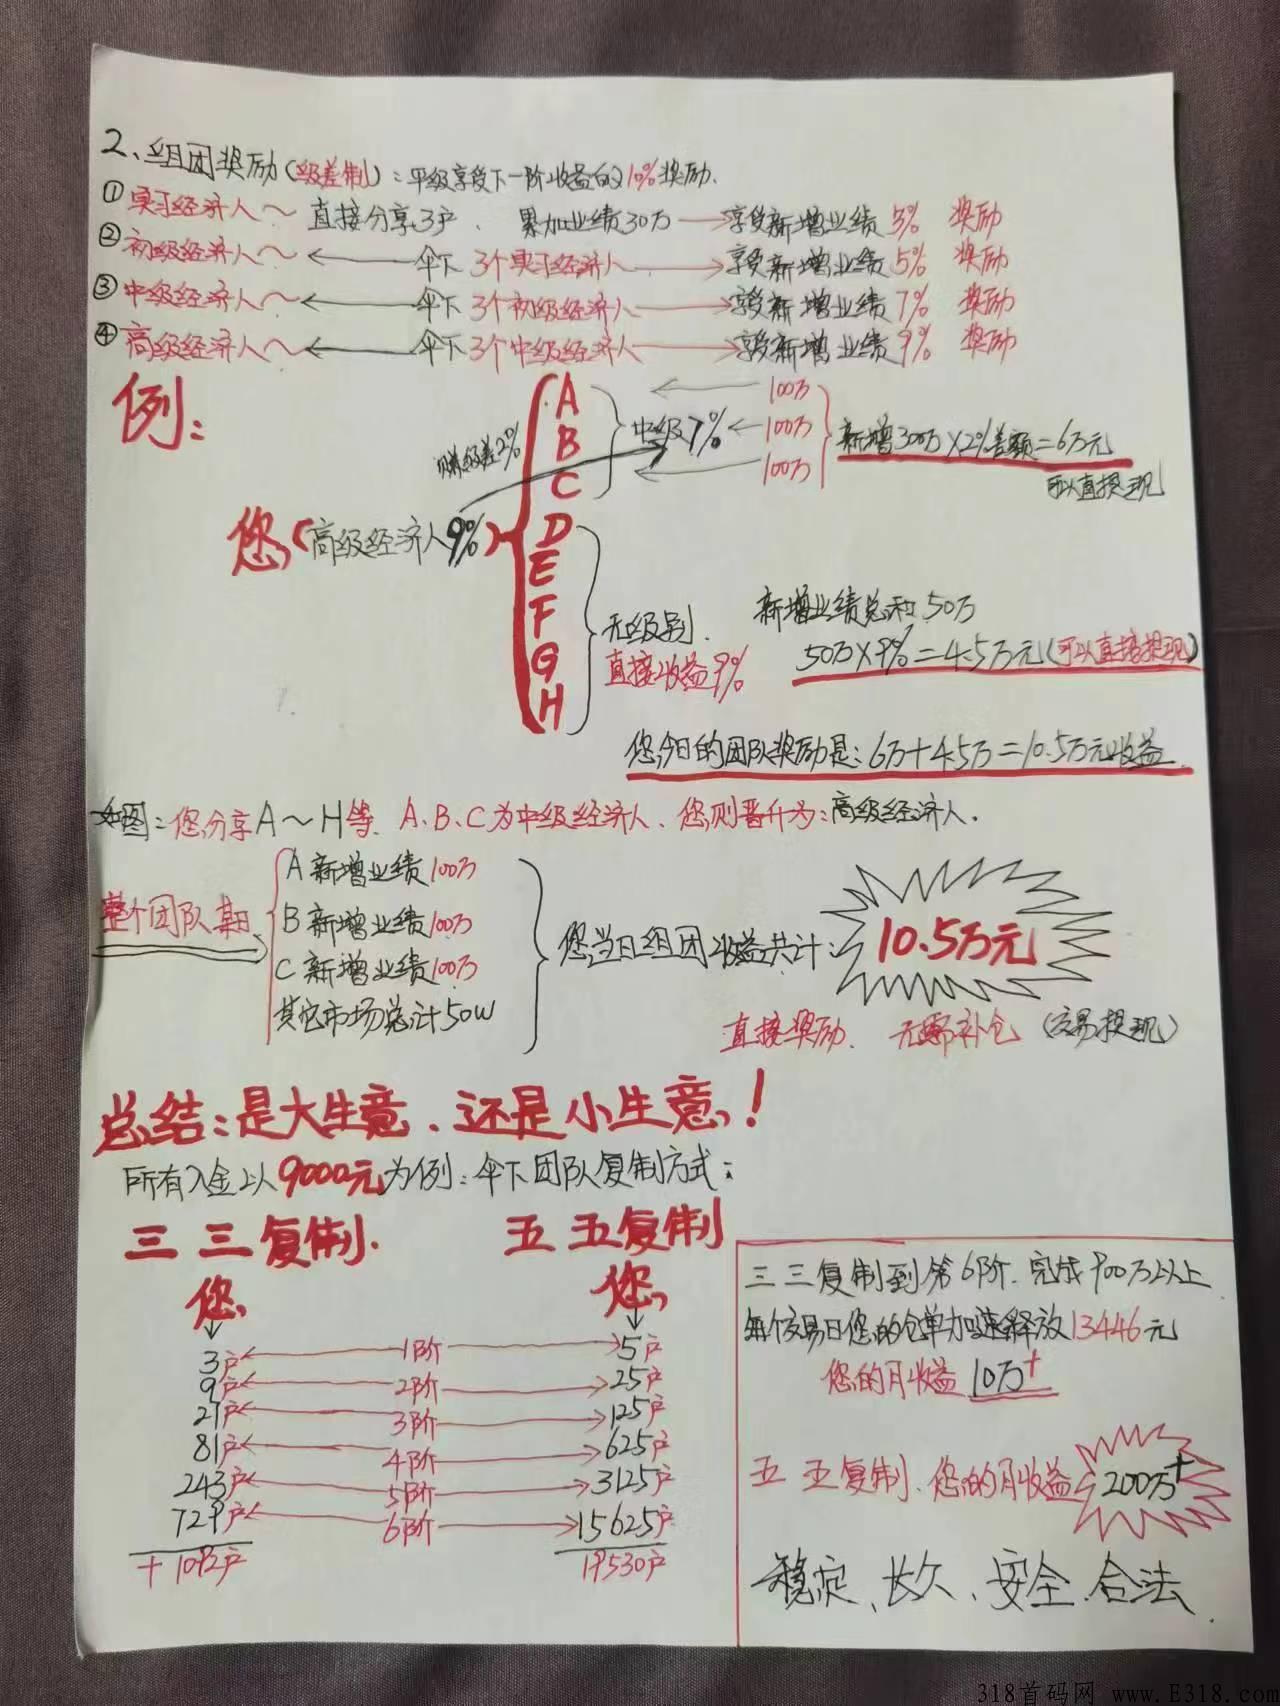 2、组团奖励(级差制):平级享受下一阶收益的10%奖励.
①实习经济人～ 直接分享3户、累加业绩30万→享受新增业绩3% 奖励
②初级经济人～←伞下3个实习经济人→享受新增业绩5% 奖励
③中级经济人～←伞下3个初级经济人→享受新增业绩7% 奖励
④高级经济人～←伞下3个中级经济人→享受新增业绩9% 奖励
例:
您(高级经济人9%)
赚级差2%
A
B
C
D
E
F
G
H
中级7%
100万
100万
100万
新增300万×2%差额=6万元
可以直接提现
无级别.
直接收益9%
新增业绩总和50万
50万×9%=4.5万元(可以直接提现)
您今日的团队奖励是:6万+4.5万=10.5万元收益.
如图:您分享A～H等、A、B、C为中级经济人、您则晋升为:高级经济人.
整个团队某日
A新增业绩100万
B新增业绩100万
C新增业绩100万
其它市场总计50W
您当日组团收益共计:
10.5万元
直接奖励、无需补仓(交易提现)
总结:是大生意、还是小生意!
所有入金以9000元为例:伞下团队复制方式:
三三复制. 五五复制
您 您
3户←1阶→5户
9户←2阶→25户
27户←3阶→125户
81户←4阶→625户
243户←5阶→3125户
729户←6阶→15625户
+1092户 19530户
三三复制到第6阶.完成900万以上
每个交易日您的仓单加速释放13446元
您的月收益10万+
五五复制.您的月收益200万+
稳定、长久、安全.合法.
318首码网 www.E318.com